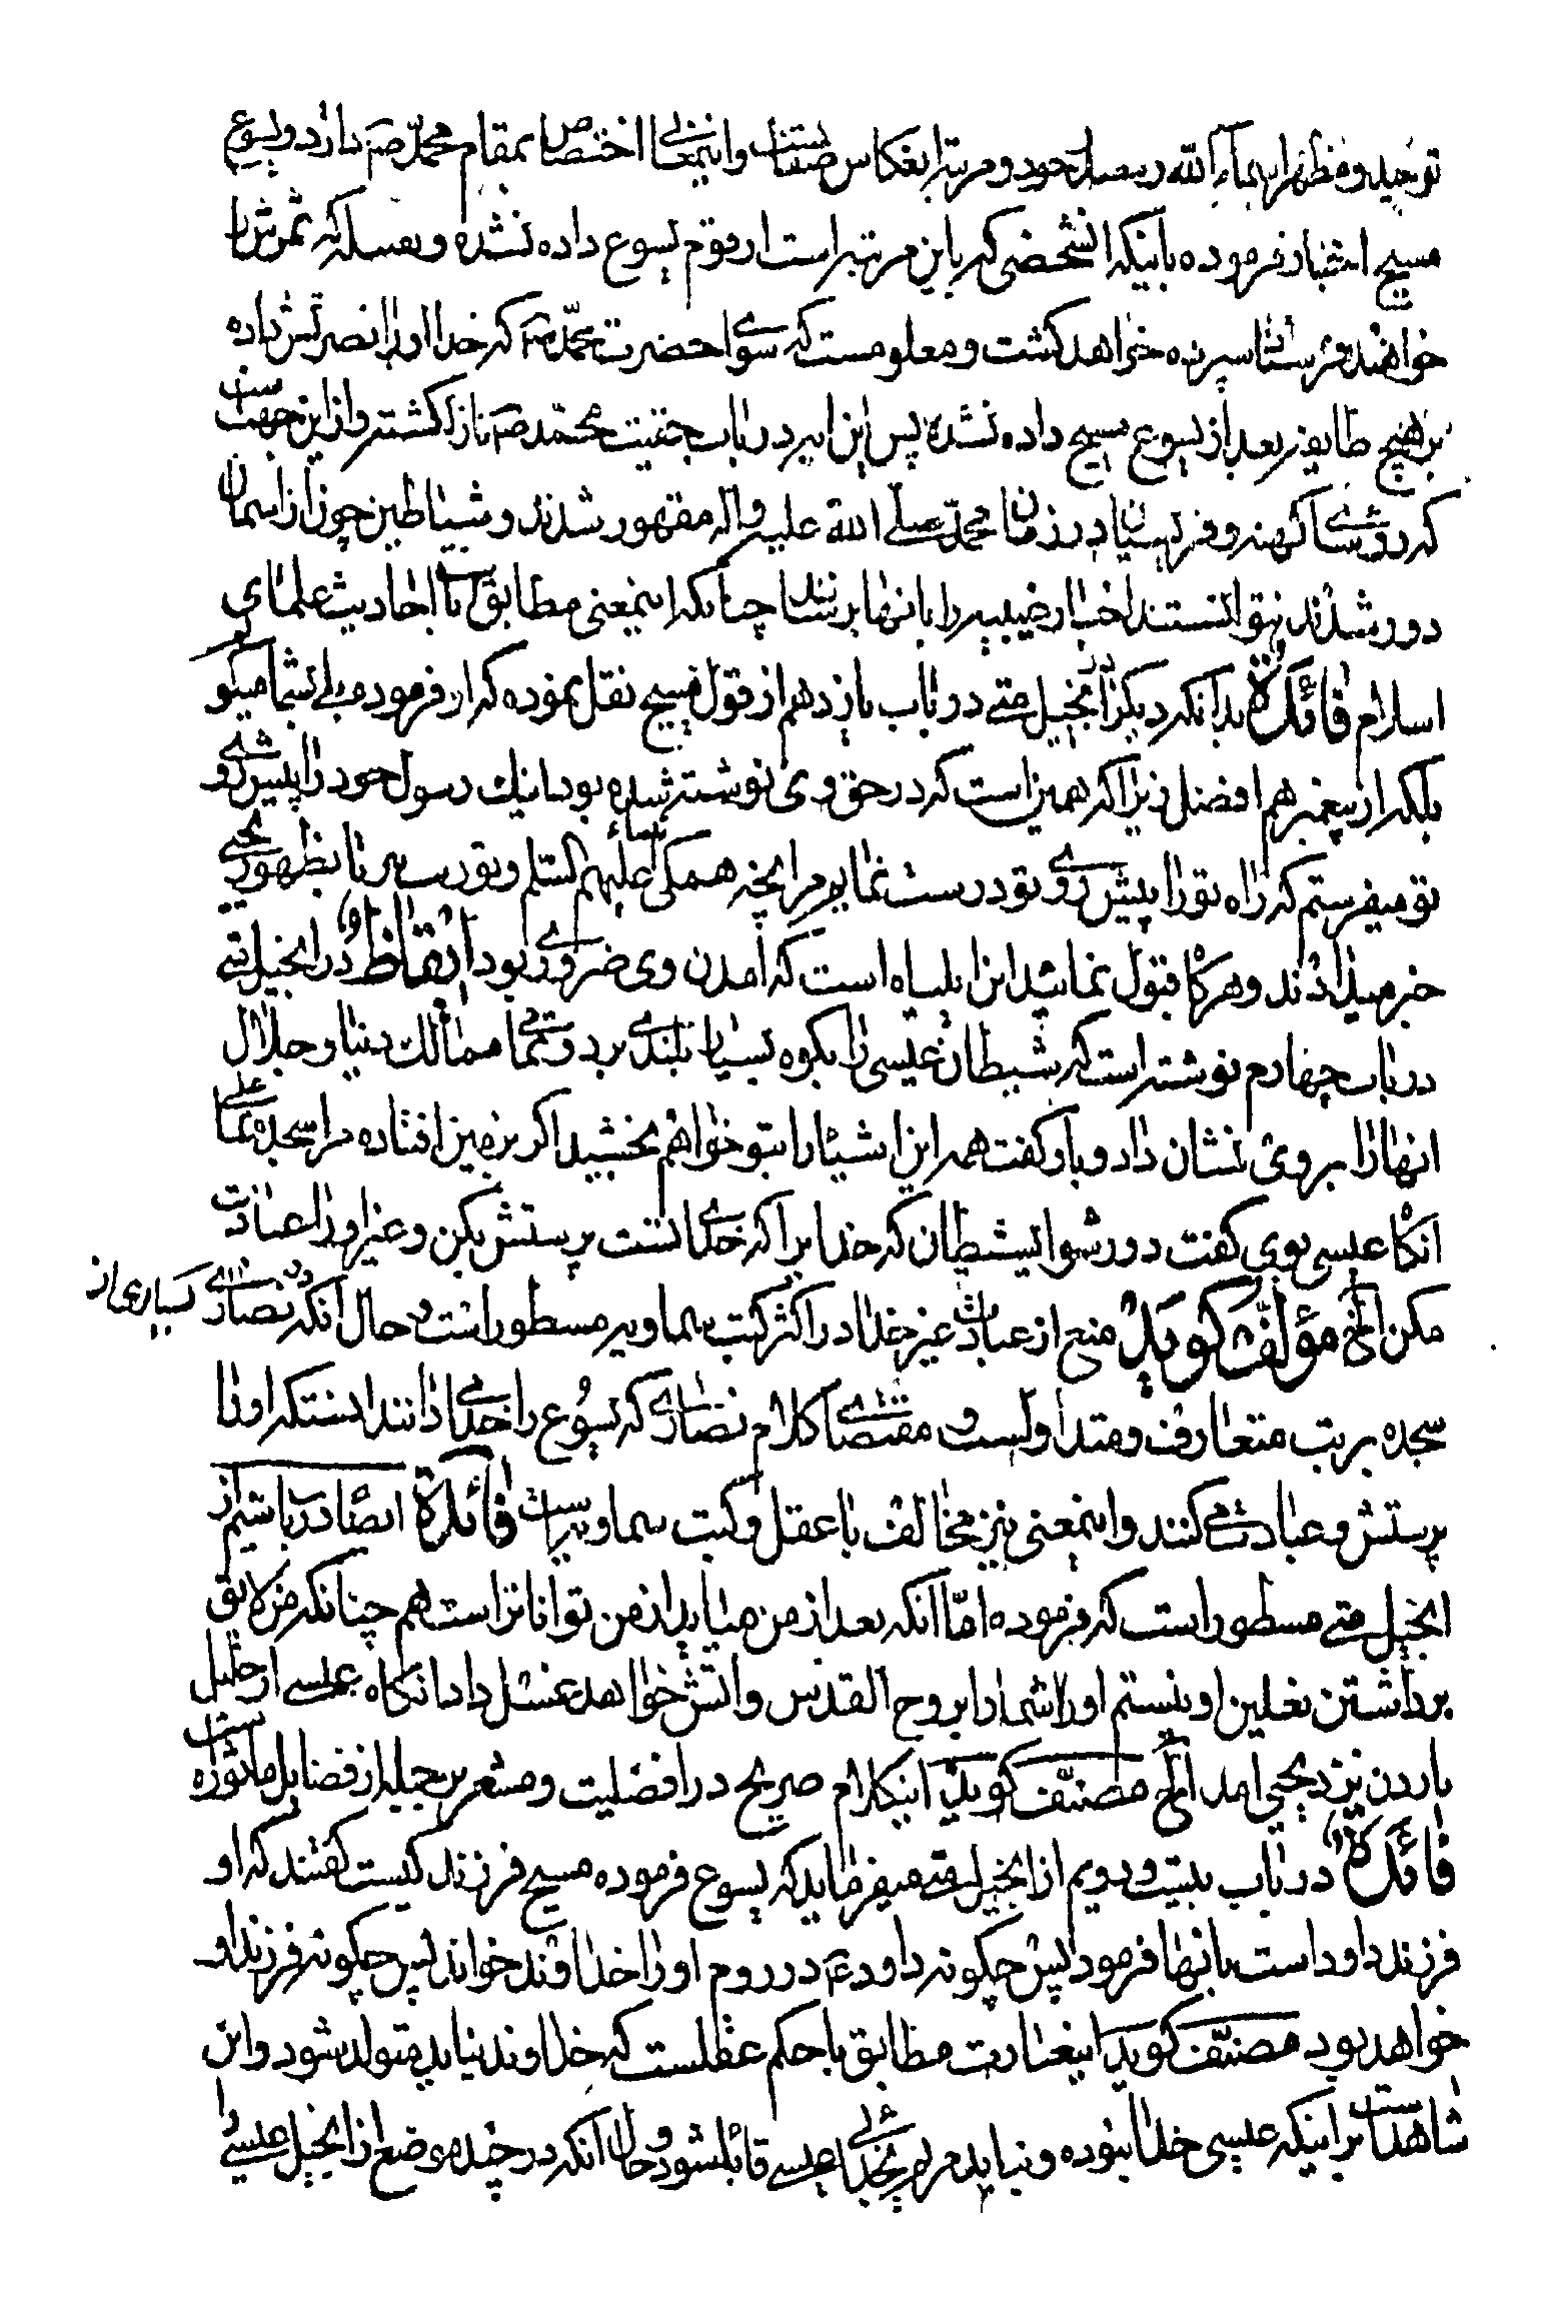 توحید و مظهر اسماء الله رسل خود و مرتبه انعکاس صفاتست و اینمعنی اختصاص بمقام محمد صم دارد و یسوع
مسیح اشعار فرموده باینکه انشخصی که باین مرتبه است از قوم یسوع داده نشده و بسلسله که ثمرش را
خواهند فرستاد سپرده خواهد کشت و معلومست که سوای حضرت محمد صم که خدا او را نصرتش داده
بر هیچ طایفه بعد از یسوع مسیح داده نشده پس این ایه در باب حقیت محمد صم نازل کشته و از این جهتست
که رؤسای کهنه و فریسیان در زمان محمد صلی الله علیه و اله مقهور شدند و شیاطین چون از اسمان
دور شدند نتوانستند اخبار غیبیه را بانها برسانند چنانکه اینمعنی مطابق است با احادیث علمای
اسلام فائدة بدانکه دیکر در انجیل متی در باب یازدهم از قول مسیح نقل نموده که او فرموده بلی بشما میکویم
بلکه از پیغمبر هم افضل زیرا که همین است که در حق وی نوشته شده بود اینك رسول خود را پیش روی
تو میفرستم که راه تو را پیش روی تو درست نماید مر انچه همکی انبیاء علیهم السلم و توریة تا بظهور یحیی
خبر میدادند و هرکاه قبول نمائید این ایلیاه است که امدن وی ضروری بود ایقاظ در انجیل متی
در باب چهارم نوشته است که شیطان عیسی را بکوه بسیار بلندی برد و تمامی ممالك دنیا و جلال
انها را بر وی نشان داد و باو کفت همه این اشیاء را بتو خواهم بخشید اکر بر زمین افتاده مرا سجده نمائی
انکاه عیسی بوی کفت دور شو ای شیطان که خدایرا که خدای تست پرستش بکن و غیر او را عبادت
مکن الخ مؤلف کوید منع از عبادت غیر خدا در اکثر کتب سماویه مسطور است و حال انکه در نصاری بسیاری از
سجده بر بت متعارف و متداولست و مقتضای کلام نصاری که یسوع را خدا دانند انستکه او را
پرستش و عبادت می کنند و اینمعنی نیز مخالف با عقل و کتب سماویه است فائدة ایضا در باب سیم از
انجیل متی مسطور است که فرموده اما انکه بعد از من میاید از من تواناتر است هم چنانکه من لایق
برداشتن نعلین او نیستم او شما را بروح القدس و اتش خواهد غسل داد انکاه عیسی از جلیل
باردن نزد یحیی امد الخ مصنف کوید اینکلام صریح در افضلیت و مشعر بر جمله از فضایل ماثوره است
فائدة در باب بیست و دویم از انجیل متی میفرماید که یسوع فرموده مسیح فرزند کیست کفتند که او
فرزند داود است بانها فرمود پس چکونه داود ع در روح او را خداوند خواند پس چکونه فرزند او
خواهد بود مصنف کوید اینعبارت مطابق با حکم عقلست که خداوند نباید متولد شود و این
شاهدست بر اینکه عیسی خدا نبوده و نباید مردم بخدائی عیسی قائلشود و حال انکه در چند موضع از انجیل عیسی را